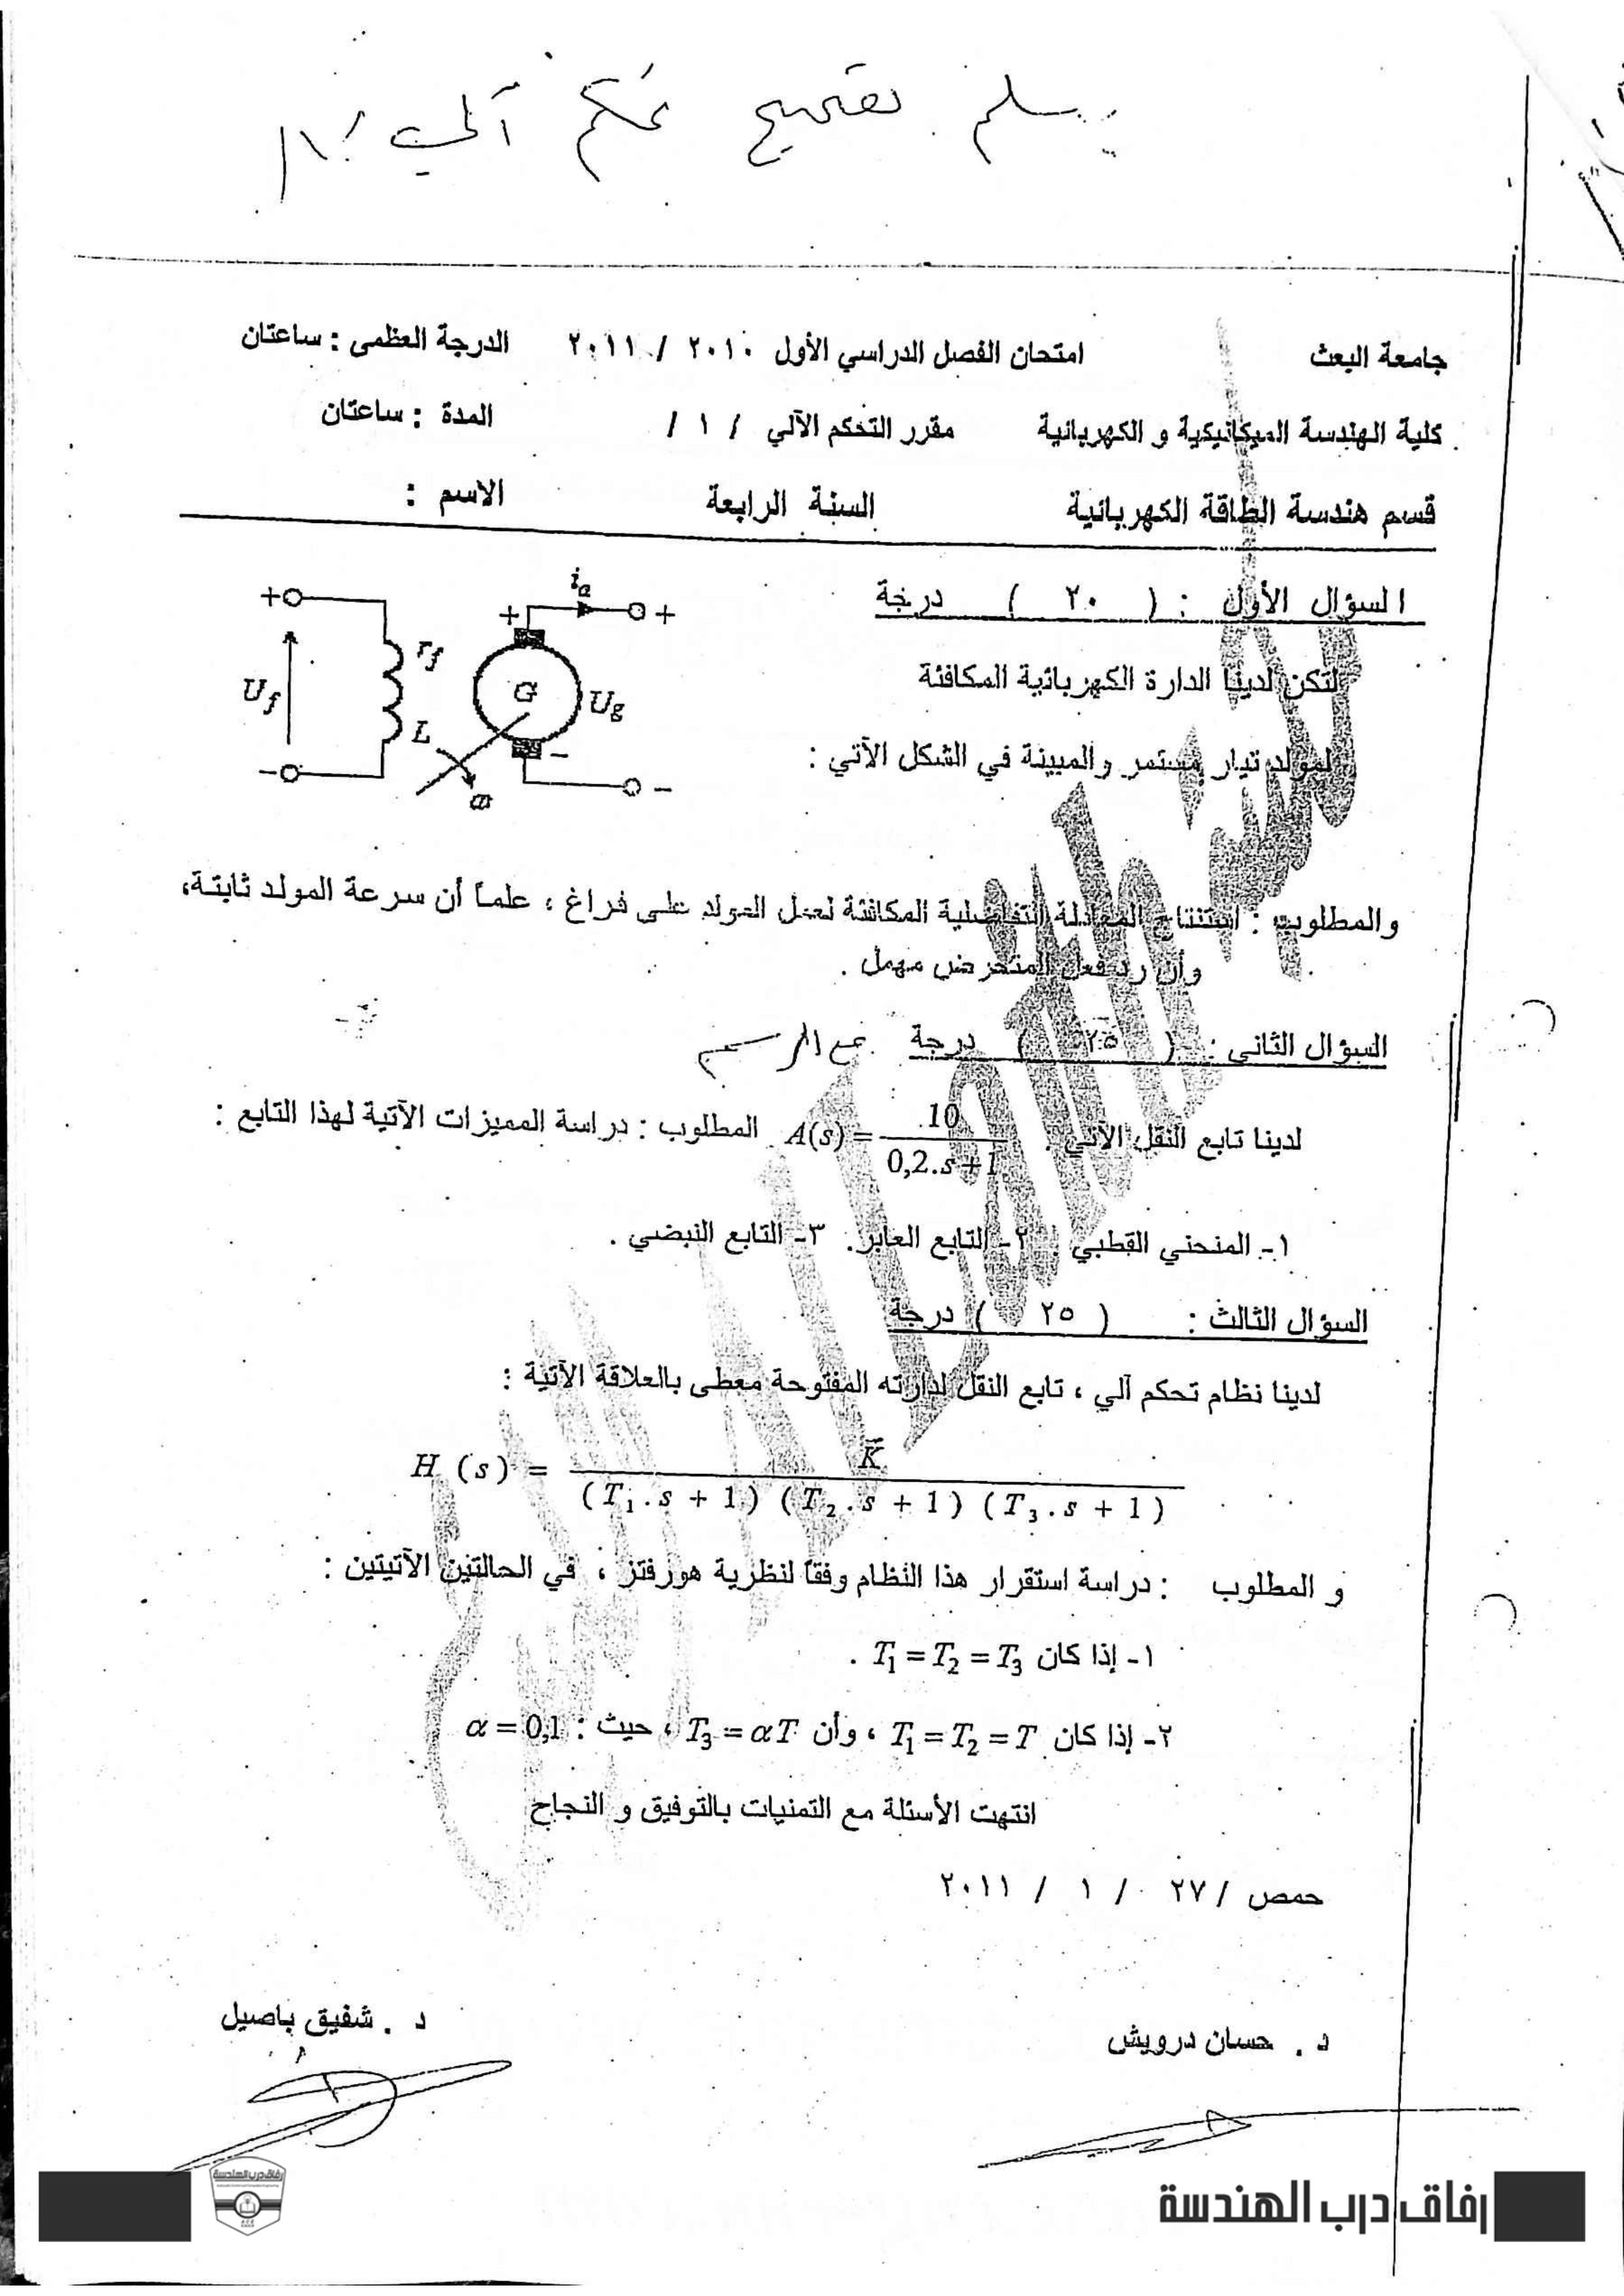 يسلم تصحيح تحكم آلي /١/
جامعة البعث امتحان الفصل الدراسي الأول ٢٠١٠ / ٢٠١١ الدرجة العظمى : ساعتان
كلية الهندسة الميكانيكية و الكهربائية مقرر التحكم الآلي / ١ / المدة : ساعتان
قسم هندسة الطاقة الكهربائية السنة الرابعة الاسم :
السؤال الأول : ( ٢٠ ) درجة
لتكن لدينا الدارة الكهربائية المكافئة
لمولد تيار مستمر والمبينة في الشكل الآتي :
+ Uf − rf L ω + ia + G Ug − −
والمطلوب : استنتاج المعادلة التفاضلية المكافئة لعمل المولد على فراغ ، علماً أن سرعة المولد ثابتة،
وأن رد فعل المتحرض مهمل .
السؤال الثاني : ( ٢٥ ) درجة مع الرسم
لدينا تابع النقل الآتي : A(s) = 10 / (0,2.s+1) . المطلوب : دراسة المميزات الآتية لهذا التابع :
١- المنحني القطبي . ٢- التابع العابر. ٣- التابع النبضي .
السؤال الثالث : ( ٢٥ ) درجة
لدينا نظام تحكم آلي ، تابع النقل لدارته المفتوحة معطى بالعلاقة الآتية :
H (s) = K / (T1.s + 1) (T2.s + 1) (T3.s + 1)
و المطلوب : دراسة استقرار هذا النظام وفقاً لنظرية هورفتز ، في الحالتين الآتيتين :
١- إذا كان T1 = T2 = T3 .
٢- إذا كان T1 = T2 = T ، وأن T3 = αT ، حيث : α = 0,1
انتهت الأسئلة مع التمنيات بالتوفيق و النجاح
حمص / ٢٧ / ١ / ٢٠١١
د . حسان درويش د . شفيق باصيل
رفاق درب الهندسة